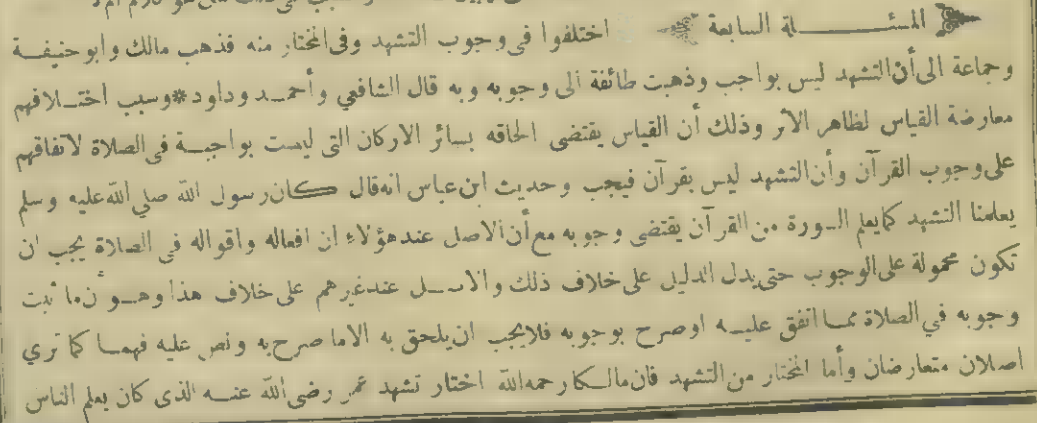 المسئلة السابعة اختلفوا في وجوب التشهد وفي المختار منه فذهب مالك وابو حنيفة
وجماعة الى أن التشهد ليس بواجب وذهبت طائفة الى وجوبه وبه قال الشافعي وأحمد وداود *وسبب اختلافهم
معارضة القياس لظاهر الاثر وذلك أن القياس يقتضى الحاقه بسائر الاركان التى ليست بواجبة فى الصلاة لاتفاقهم
على وجوب القرآن وأن التشهد ليس بقرآن فيجب وحديث ابن عباس انه قال كان رسول الله صلى الله عليه وسلم
يعلمنا التشهد كما يعلم السورة من القرآن يقتضى وجوبه مع أن الاصل عند هؤلاء ان افعاله واقواله فى الصلاة يجب ان
تكون محمولة على الوجوب حتى يدل الدليل على خلاف ذلك والاصل عند غيرهم على خلاف هذا وهو أن ما ثبت
وجوبه في الصلاة مما اتفق عليه او صرح بوجوبه فلا يجب ان يلحق به الا ما صرح به ونص عليه فهما كما تري
اصلان متعارضان وأما المختار من التشهد فان مالكا رحمه الله اختار تشهد عمر رضى الله عنه الذى كان يعلم الناس